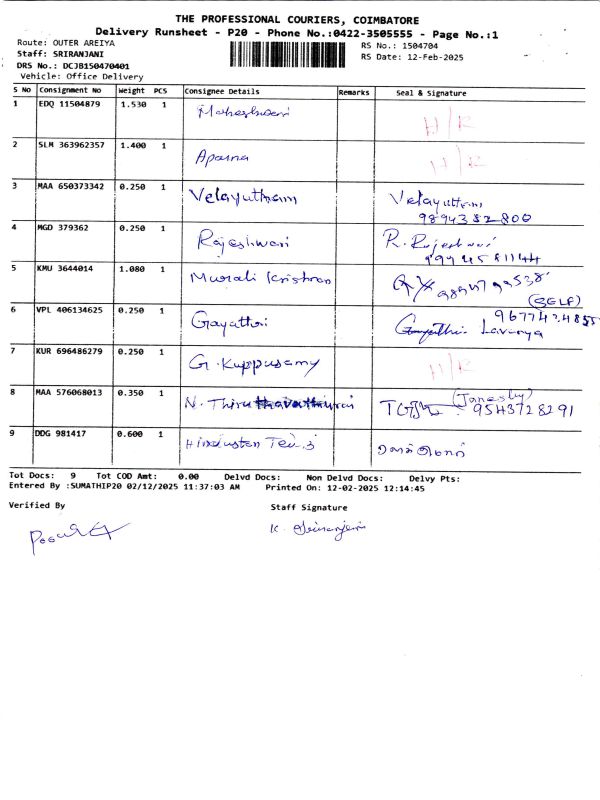 THE PROFESSIONAL COURIERS, COIMBATORE
Delivery Runsheet - P20 - Phone No.:0422-3505555 - Page No.:1
Route: OUTER AREIYA
Staff: SRIRANJANI
DRS No.: DCJB150470401
Vehicle: Office Delivery
RS No.: 1504704
RS Date: 12-Feb-2025
S No Consignment No Weight PCS Consignee Details Remarks Seal & Signature
1 EDQ 11504879 1.530 1 Maheshwari H/R
2 SLM 363962357 1.400 1 Aparna H/R
3 MAA 650373342 0.250 1 Velayutham Velayutham
9894382800
4 MGD 379362 0.250 1 Rajeshwari R. Rajeshwari
5 KMU 3644014 1.080 1 Murali Krishnan
(SELF)
6 VPL 406134625 0.250 1 Gayathri Lavanya
7 KUR 696486279 0.250 1 G. Kuppusamy H/R
8 MAA 576068013 0.350 1 N. 9543728291
9 DDG 981417 0.600 1 Hindustan
Tot Docs: 9 Tot COD Amt: 0.00 Delvd Docs: Non Delvd Docs: Delvy Pts:
Entered By :SUMATHIP20 02/12/2025 11:37:03 AM Printed On: 12-02-2025 12:14:45
Verified By Staff Signature
K. Sriranjani